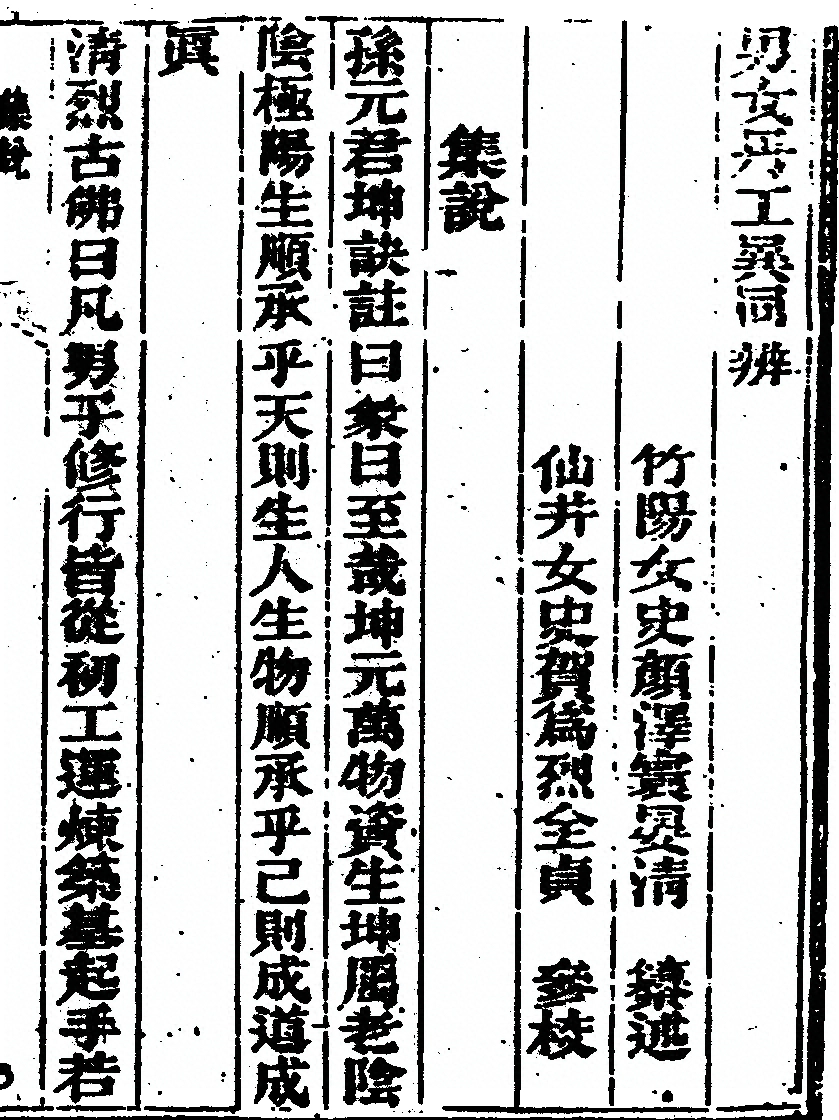 男女丹工異同辨
竹陽女史顏澤寰㫤清 纂述
仙井女史賀爲烈全貞 參校
集說
孫元君坤訣註曰彖曰至哉坤元萬物資生坤屬老陰
陰極陽生順承乎天則生人生物順承乎己則成道成
眞
清烈古佛曰凡男子修行皆從初工運煉築基起手若
集說